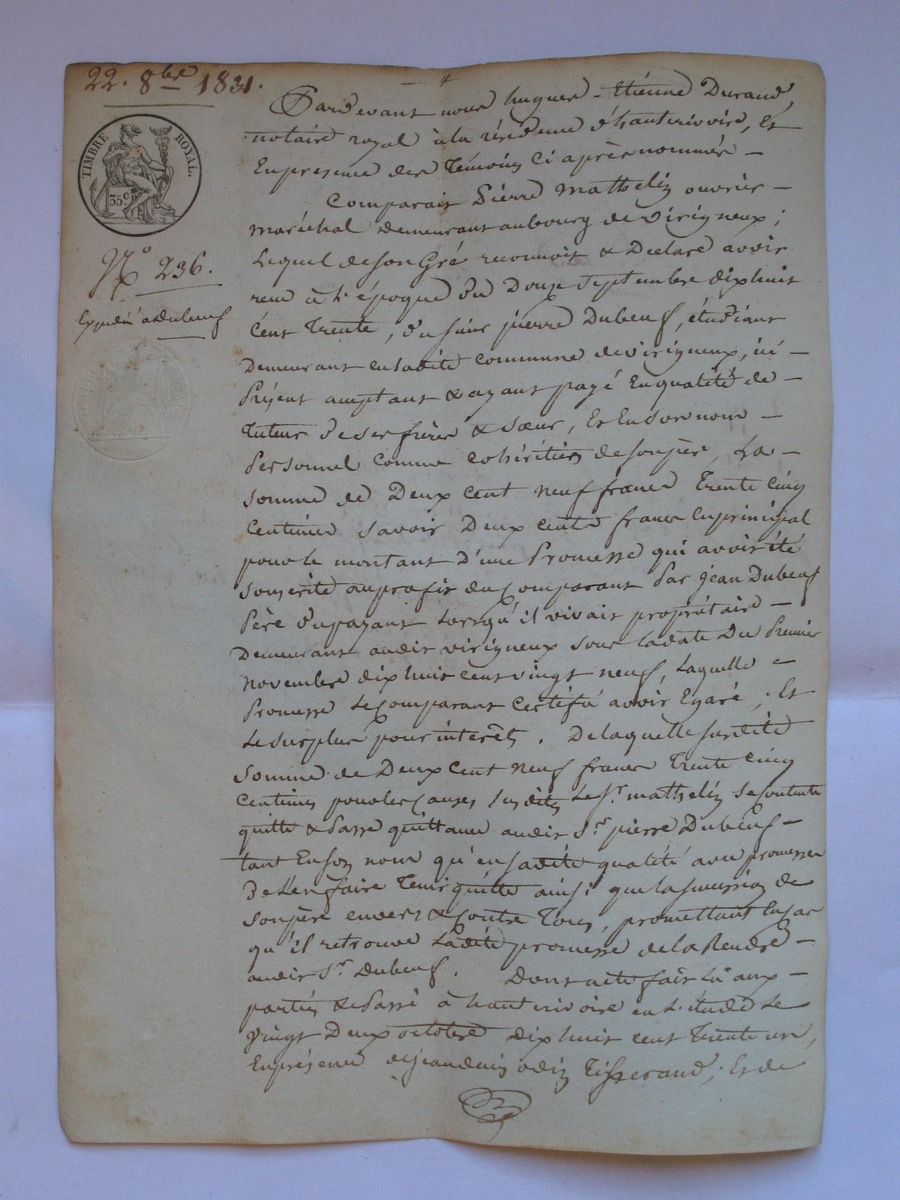 22. 8bre 1831.
TIMBRE ROYAL.
35c
No 236.
Expédié a dubeuf
Pardevant nous hugues-étiénne Durand
notaire royal à la résidence d'hauterivoire, et
En presence des Témoins Ci après nommés —
Comparait Pierre Mathelin ouvrier —
maréchal demeurant au bourg de virigneux ;
Lequel de son Gré reconnoit & Declare avoir
recu à l'époque du Douze Septembre dix huit
Cent trente, du sieur pierre Dubeuf, étudiant
Demeurant en ladite commune de virigneux, ici —
Présent acceptant & ayant payé En qualité de —
Tuteur de ses frères & Sœur, Et En son nom —
Personnel comme cohéritier de son père, La —
Somme de Deux Cent neuf francs Trente Cinq
Centimes Savoir Deux Cents francs En principal
pour le montant d'une Promesse qui avoit été
Souscrite au profit du Comparant Par jean Dubeuf
Père du payant Lorsqu'il vivait propriétaire —
Demeurant audit virigneux Sous la date Du Premier
Novembre dix huit Cent vingt neuf, Laquelle —
Promesse Le Comparant Certifie avoir Egaré, Et
Le surplus pour intérêts. De laquelle susdite
Somme de Deux Cent Neuf francs Trente Cinq
Centimes pour les Causes Susdites Le Sr. mathelin Se contente
quitte & Passe quittance audit Sr. pierre Dubeuf —
tant En son nom qu'en sadite qualité avec promesse
De L'en faire Tenir quitte ainsi que la succession de
Son père envers & Contre Tous, promettant En Cas
qu'il retrouve Ladite promesse de la Rendre —
audit Sr. Dubeuf. Dont acte fait Lû aux —
parties & Passé à hauterivoire en L'étude Le
vingt Deux octobre dix huit cent Trente un,
En présence de jean denis odin Tisserand, Et de